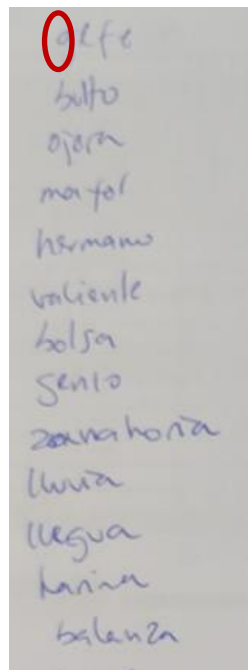 gefe
bulto
ojora
mayfol
hermano
valiente
bolsa
senlo
zanahoria
lluvia
llegua
harina
balanza